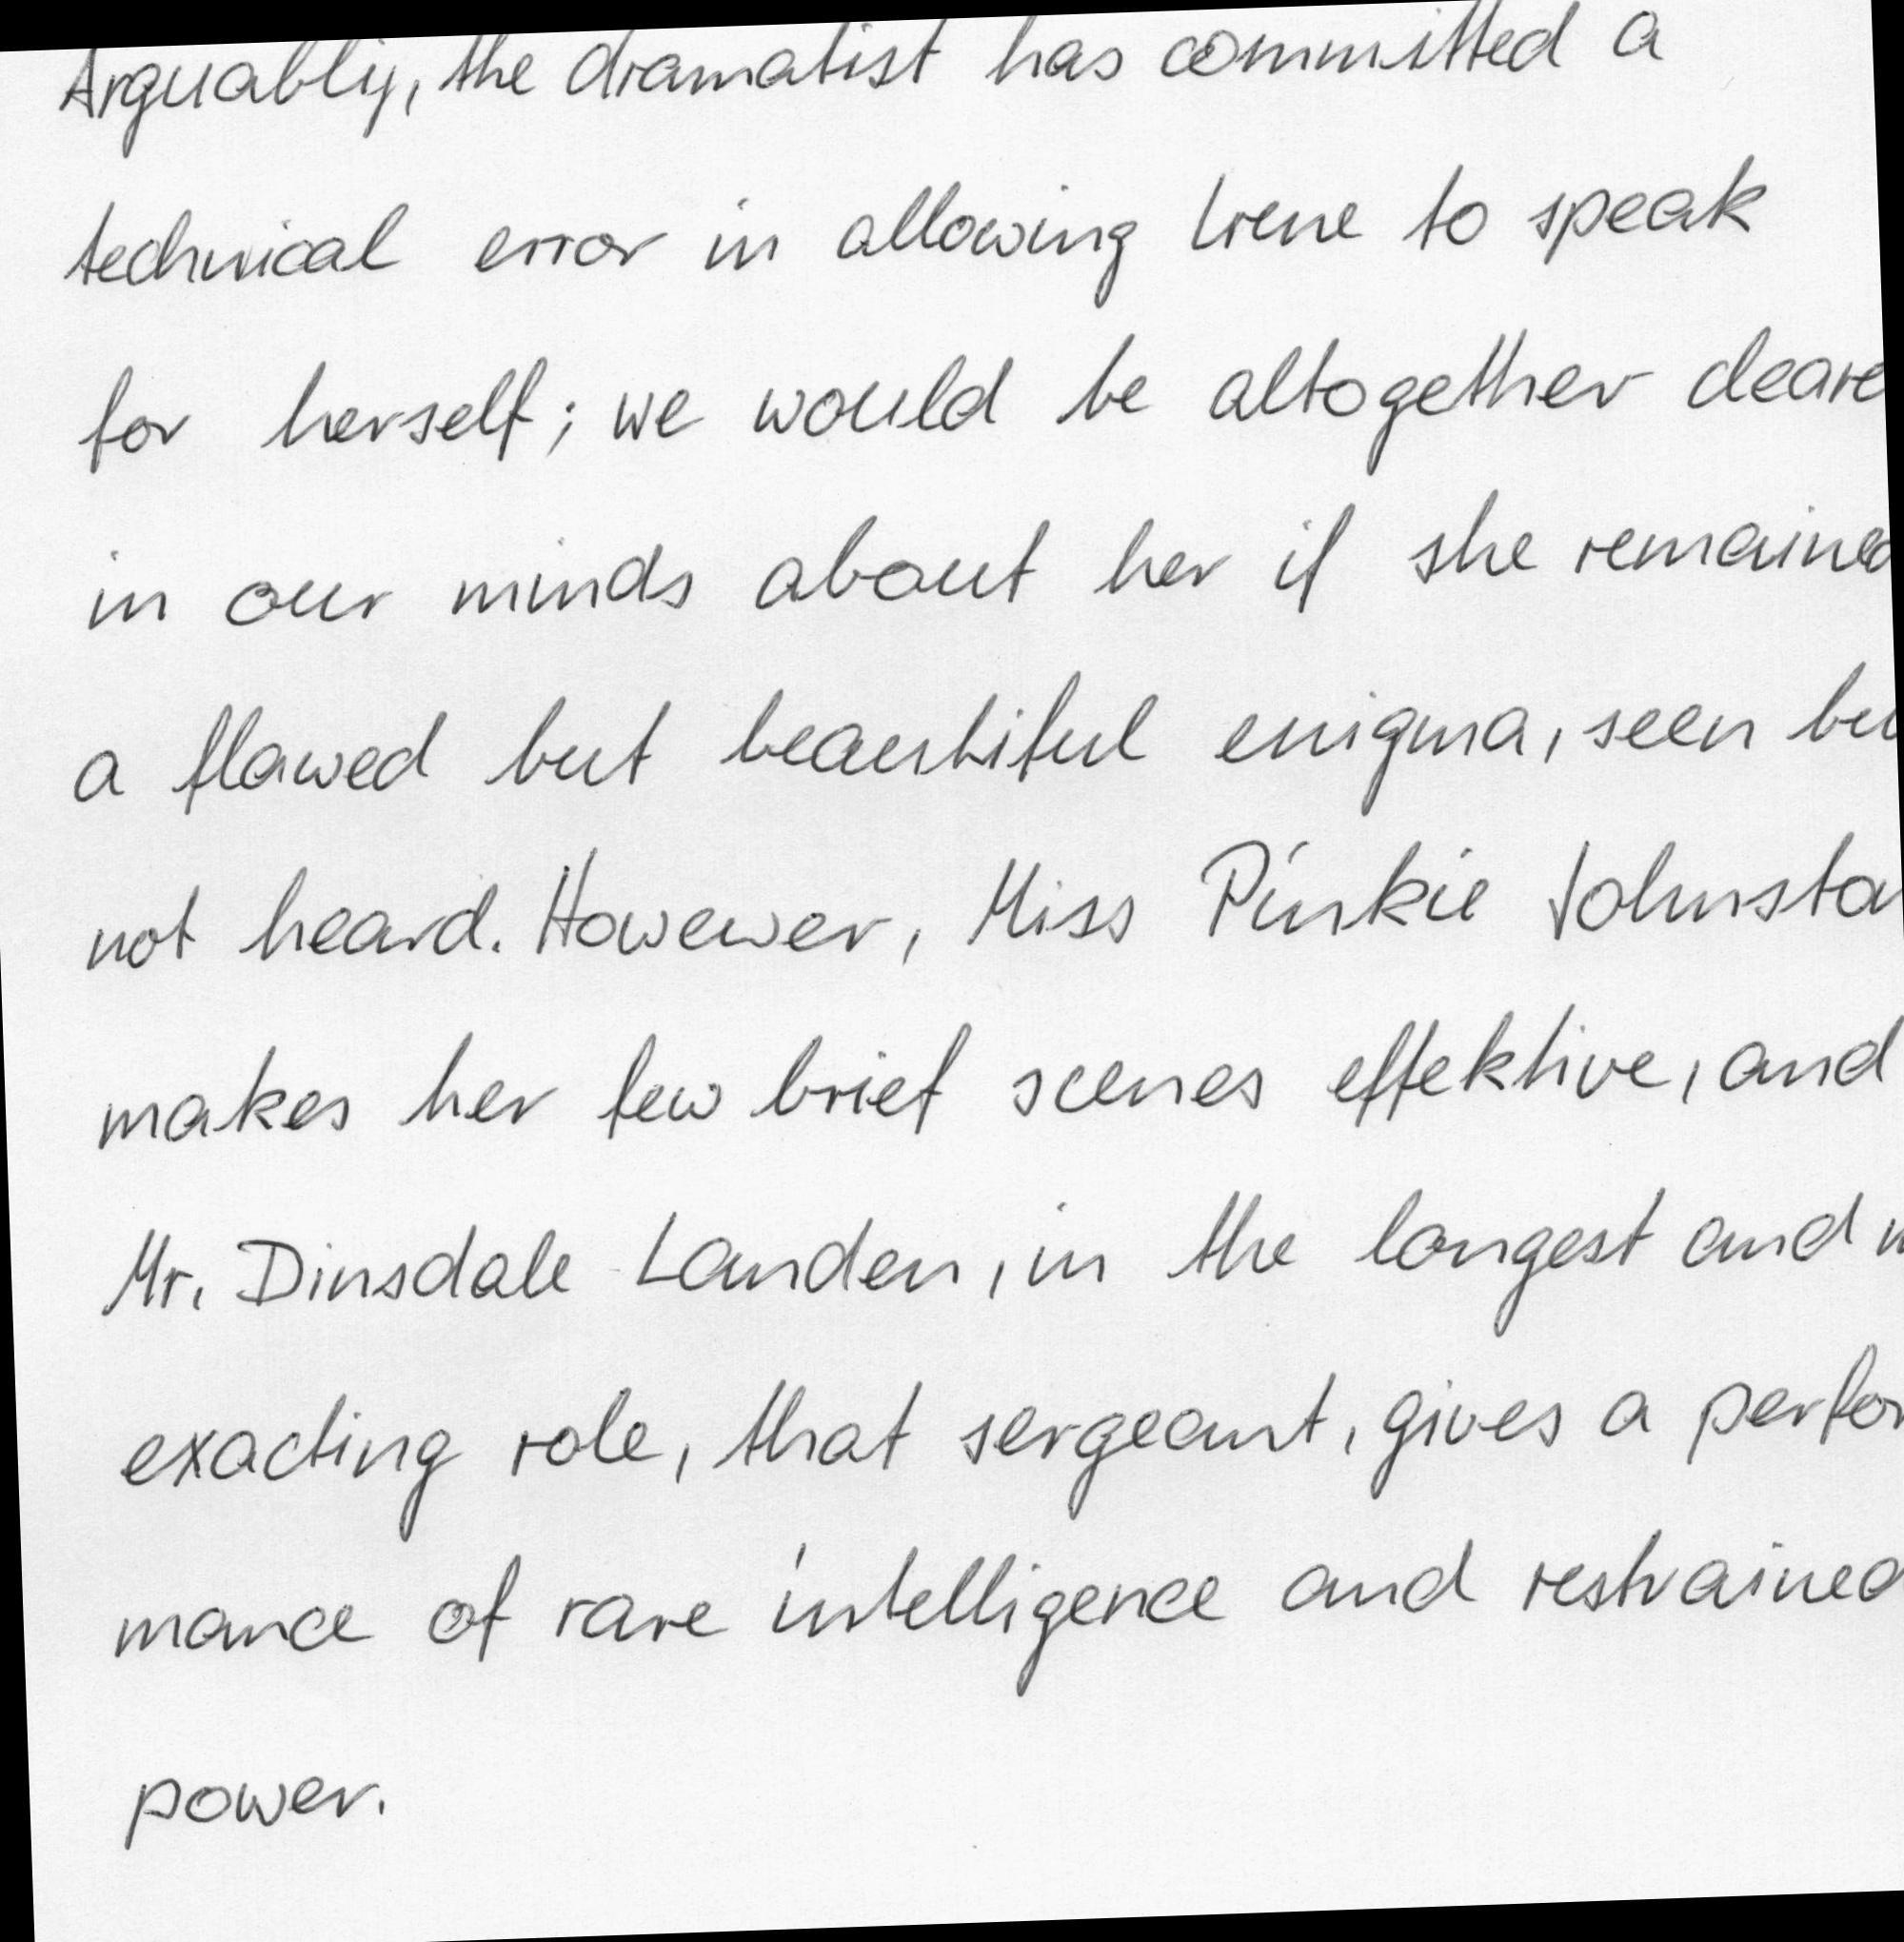 Arguably, the dramatist has committed a
technical error in allowing Irene to speak
for herself; we would be altogether cleare
in our minds about her if she remained
a flawed but beautiful enigma, seen bu
not heard. Howewer, Miss Pinkie Johnsto
makes her few brief scenes effektive, and
Mr. Dinsdale Landen, in the longest and
exacting role, that sergeant, gives a perfor
mance of rare intelligence and restrained
power.